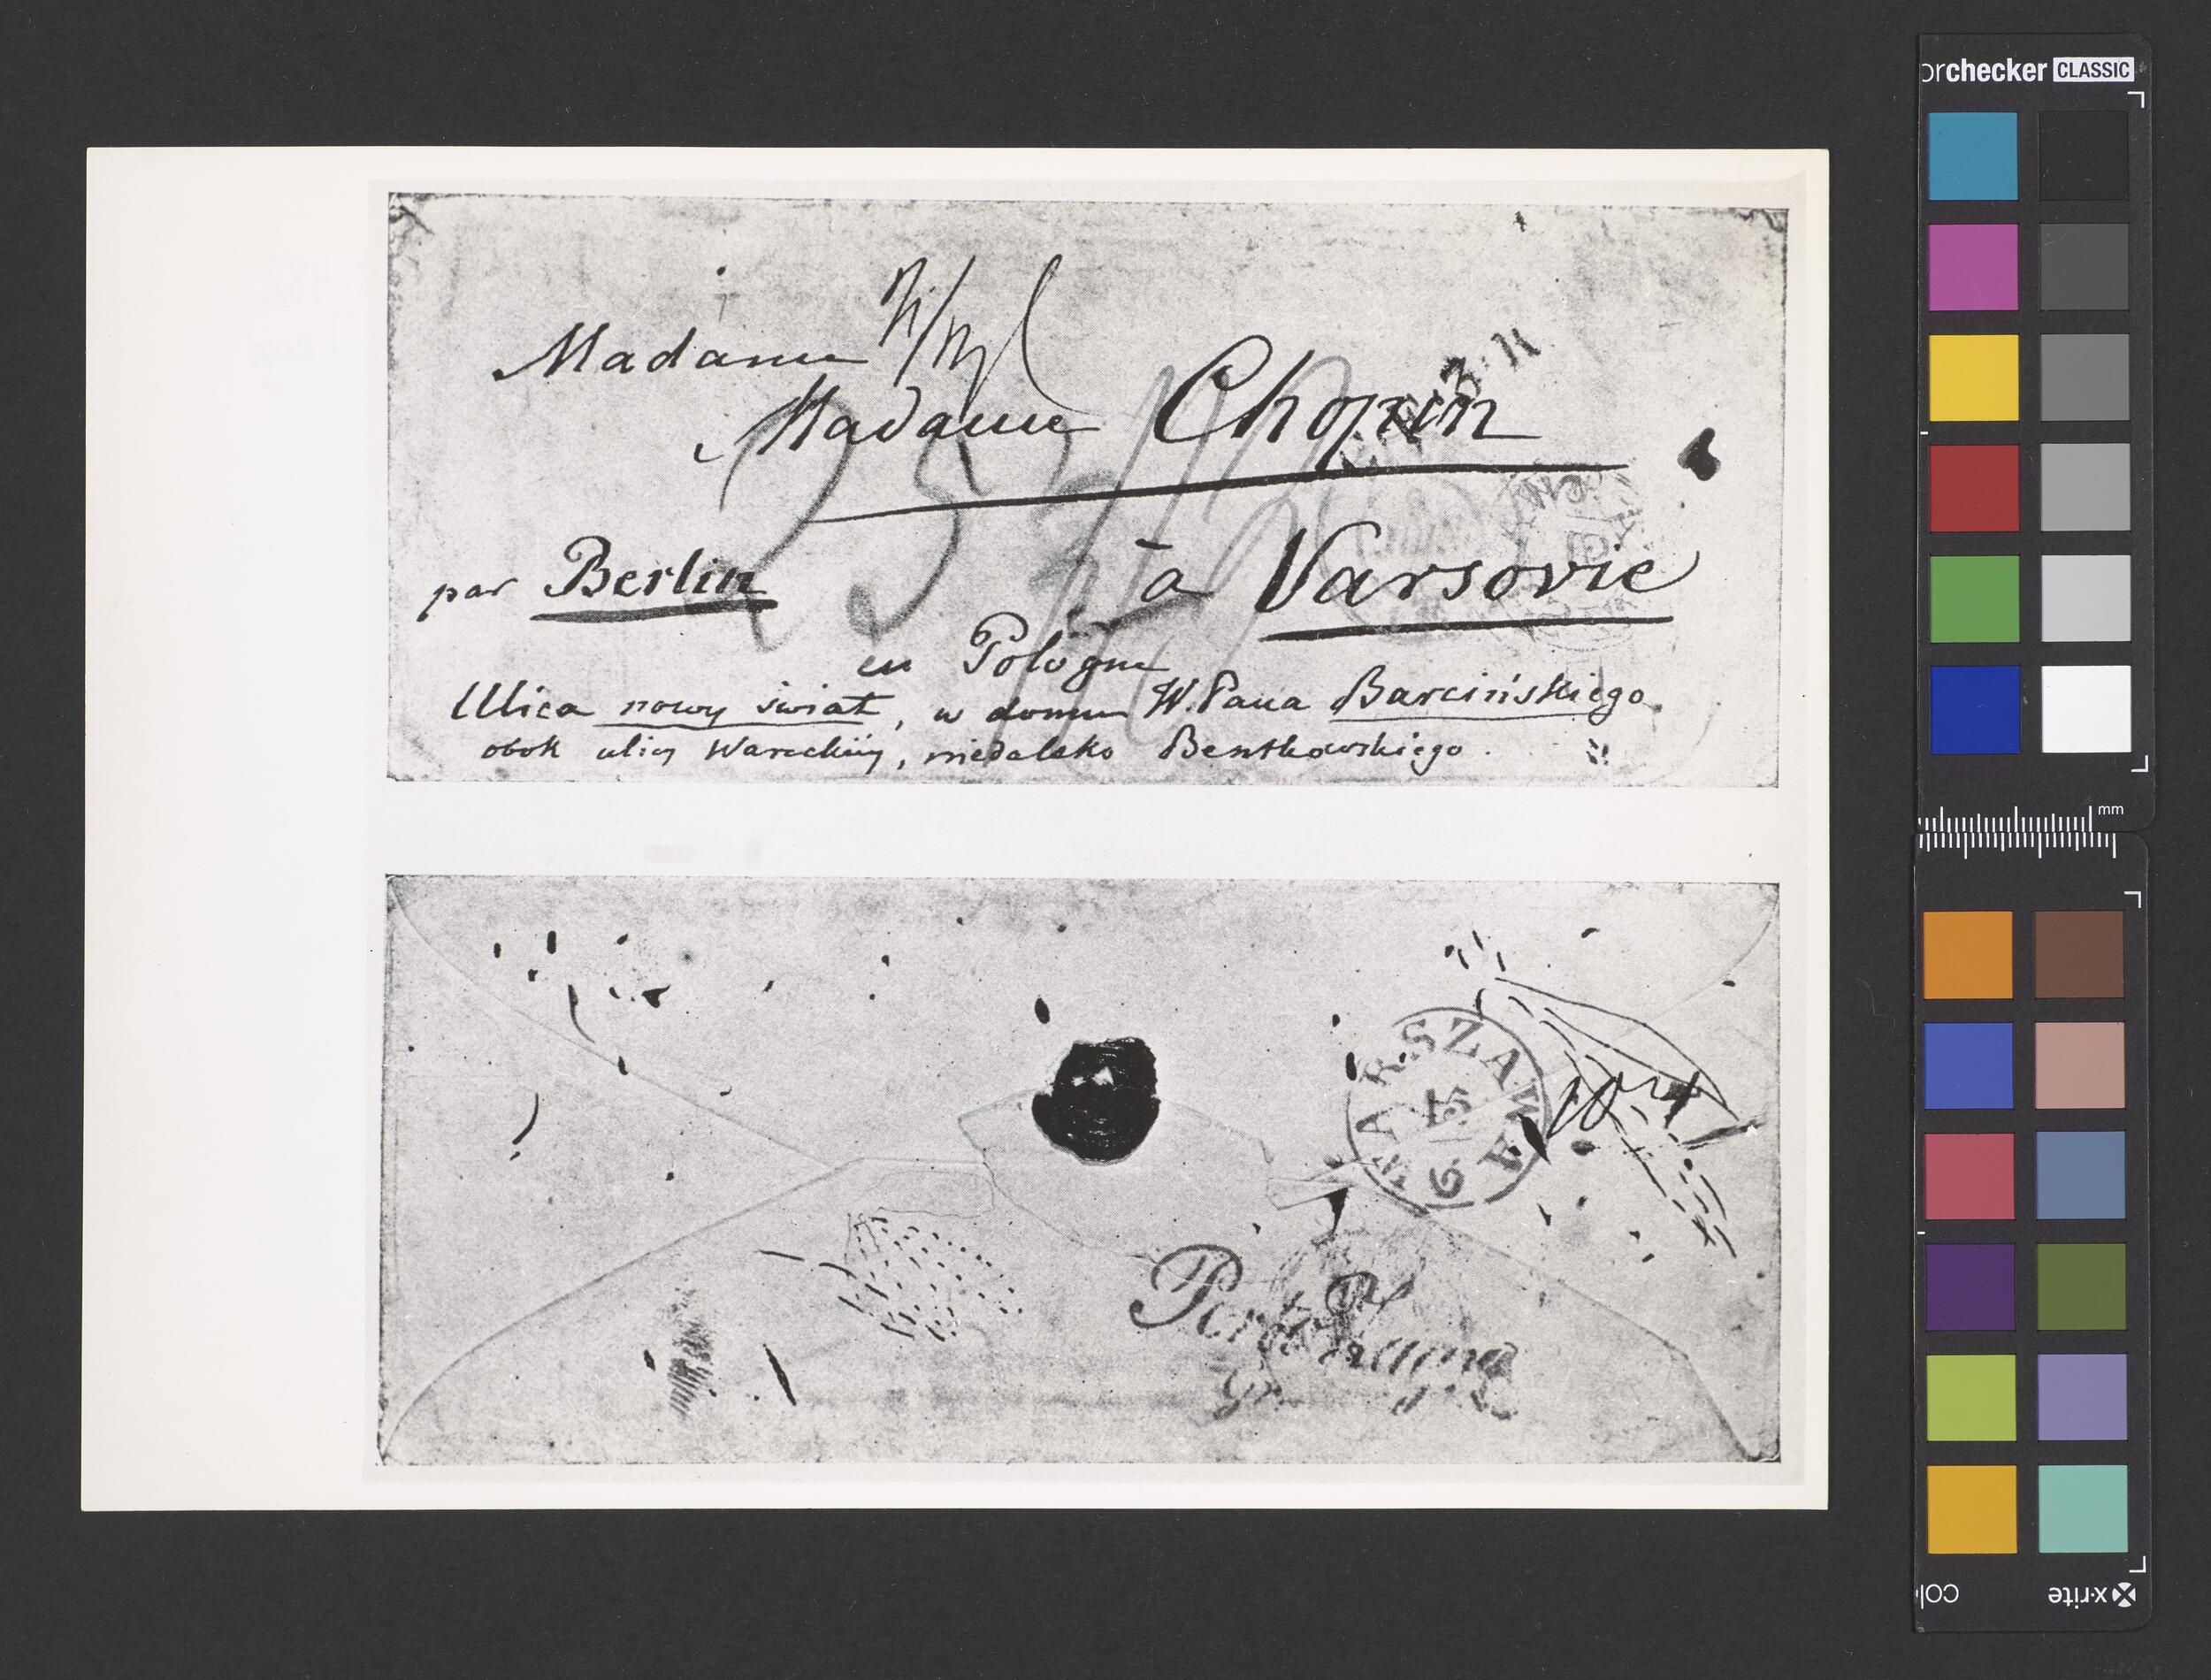 Madame
Madame Chopin
par Berlin
à Varsovie
en Pologne
Ulica nowy świat, w domu W. Pana Barcińskiego
obok ulicy Wareckiéy, niedaleko Bentkowskiego.
WARSZAWA
15
6
Porto
orchecker CLASSIC
mm
x-rite
colo